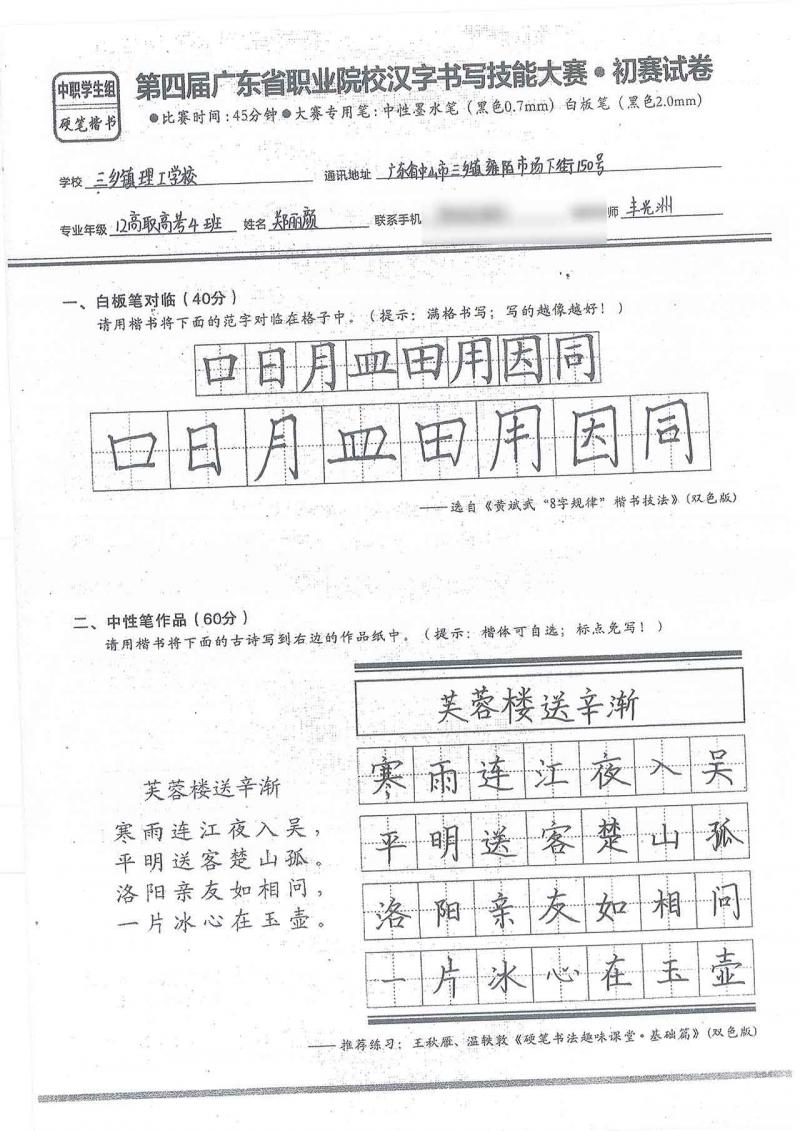 中职学生组
硬笔楷书
第四届广东省职业院校汉字书写技能大赛·初赛试卷
●比赛时间:45分钟●大赛专用笔:中性墨水笔(黑色0.7mm)白板笔(黑色2.0mm)
学校 三乡镇理工学校 通讯地址 广东省中山市三乡镇雍陌市场下街150号
专业年级 12高职高考4班 姓名 郑丽颜 联系手机 师 丰光洲
一、白板笔对临(40分)
请用楷书将下面的范字对临在格子中。(提示:满格书写;写的越像越好!)
口日月皿田用因同
口日月皿田用因同
——选自《黄斌武“8字规律”楷书技法》(双色版)
二、中性笔作品(60分)
请用楷书将下面的古诗写到右边的作品纸中。(提示:楷体可自选;标点免写!)
芙蓉楼送辛渐
寒雨连江夜入吴,
平明送客楚山孤。
洛阳亲友如相问,
一片冰心在玉壶。
芙蓉楼送辛渐
寒雨连江夜入吴
平明送客楚山孤
洛阳亲友如相问
一片冰心在玉壶
——推荐练习:王秋雁、温轶敦《硬笔书法趣味课堂·基础篇》(双色版)